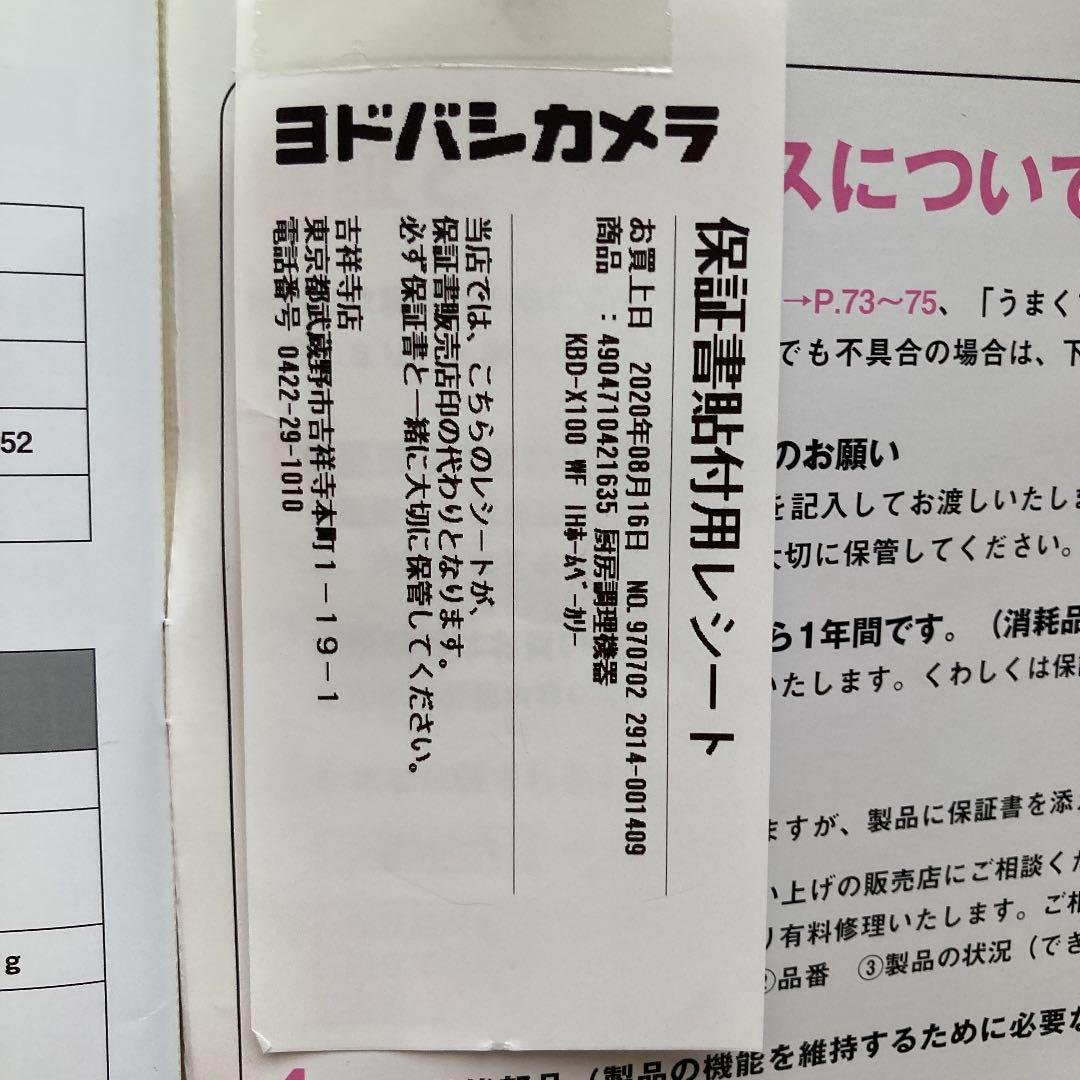 ヨドバシカメラ
保証書貼付用レシート
お買上日 2020年08月16日 NO.970702 2914-001409
商品 :4904710421635 厨房調理機器
KBD-X100 WF IHﾎｰﾑﾍﾞｰｶﾘｰ
当店では、こちらのレシートが、
保証書販売店印の代わりとなります。
必ず保証書と一緒に大切に保管してください。
吉祥寺店
東京都武蔵野市吉祥寺本町1-19-1
電話番号 0422-29-1010
スについて
→P.73〜75、「うまく
でも不具合の場合は、下
のお願い
を記入してお渡しいたしま
大切に保管してください。
ら1年間です。(消耗品
いたします。くわしくは保
ますが、製品に保証書を添
い上げの販売店にご相談くだ
り有料修理いたします。ご相
②品番 ③製品の状況(でき
(製品の機能を維持するために必要な
52
g